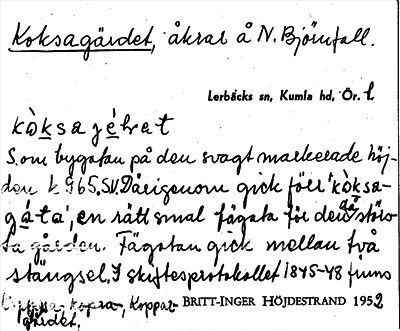 Koksagärdet, åkrar å N. Björnfall.
Lerbäcks sn, Kumla hd, Ör. l.
kò̱ksajé̱ḷet
Som bygatan på den svagt markerade höj-
den k 965, SV. Därigenom gick förr 'kò̱ksa-
gáta', en rätt smal fägata för den då störs-
ta gården. Fägatan gick mellan två
stängsel. I skiftesprotokollet 1845-48 finns
Koppra-, Koppar-
gärdet.
BRITT-INGER HÖJDESTRAND 1952